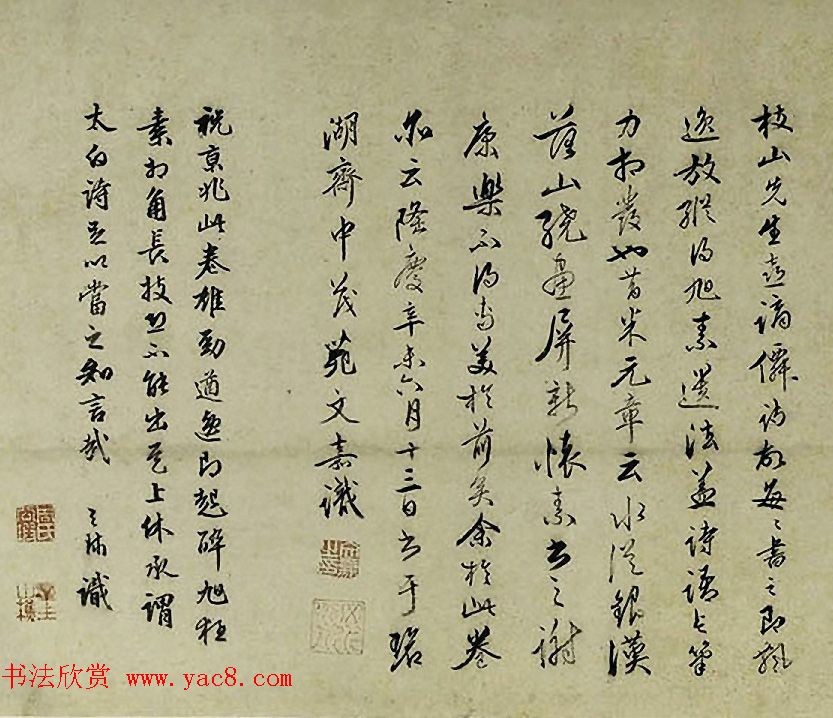 枝山先生喜謫僊詩故每〻書之即飄
逸放縱得旭素遺法蓋詩語与筆
力相發也昔米元章云水從銀漢
落山繞畫屏新懷素書之謝
康樂不得專美於前矣余於此卷
亦云隆慶辛未六月十三日書于碧
湖齋中茂苑文嘉識
祝京兆此卷雄勁遒逸即起醉旭狂
素相角長技恐不能出其上休承謂
太白詩足以當之知言哉 天球識
书法欣赏 www.yac8.com